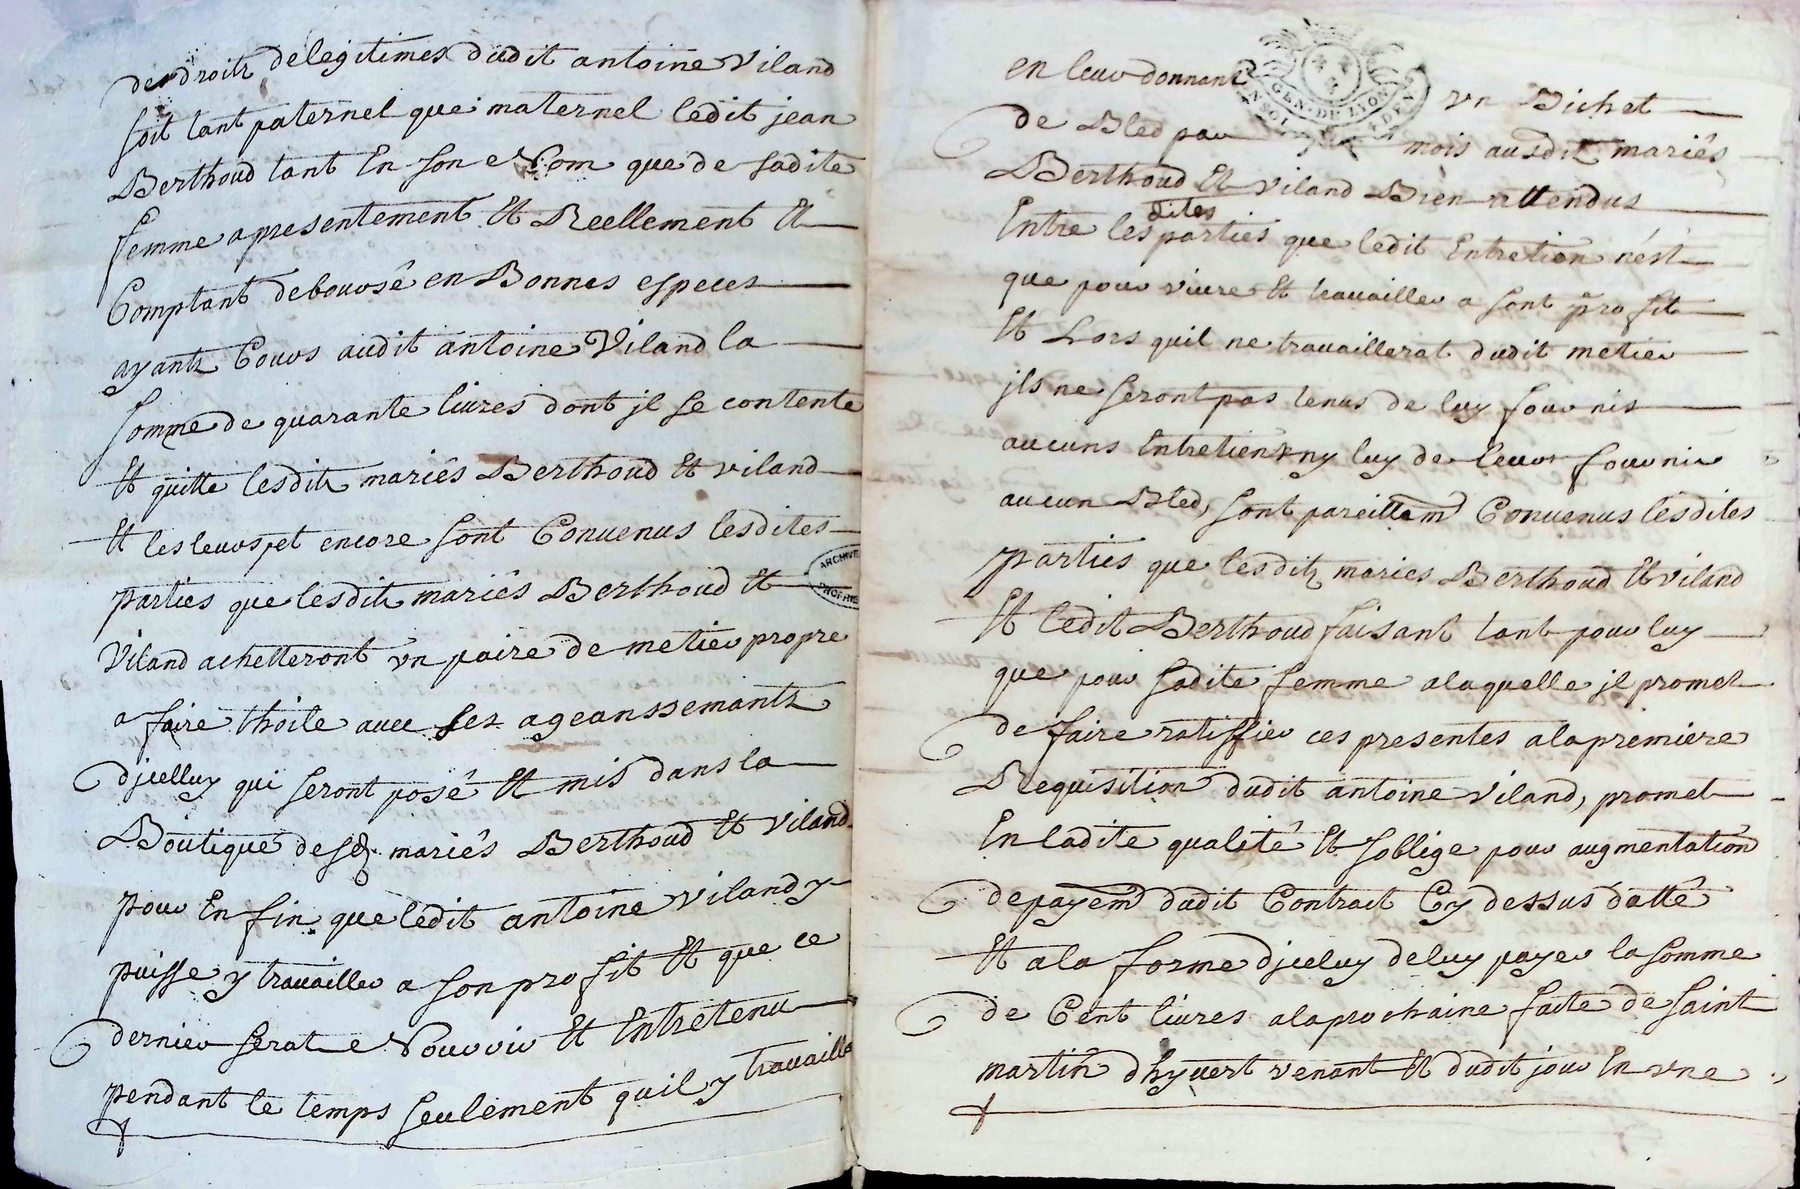 des droitz de legitimes dudit antoine Viland
soit tant paternel que maternel ledit jean
Berthoud tant En son Nom que de sadite
femme a presentement Et Reellement Et
Comptant deboursé en Bonnes especes
ayantz Cours audit antoine Viland la
somme de quarante livres dont jl se contente
Et quitte lesditz mariés Berthoud Et viland
Et les leurs, et encore sont Convenus lesdites
parties que lesditz mariés Berthoud Et
Viland achetteront vn paire de metier propre
a faire thoile avec ses ageanssemantz
djcelluy qui seront posé Et mis dans la
Boutique desd. mariés Berthoud Et Viland
pour En fin que ledit antoine Viland y
puisse y travailler a son profit Et que ce
dernier serat Nourrir Et Entretenu
pendant le temps seulement quil y travaille
en leur donnant vn Bichet
GEN. DE LYON
de Bled par mois ausditz mariés
Berthoud Et Viland Bien attendus
Entre lesdites parties que ledit Entretien nést
que pour vivre Et travailler a sont profit
Et Lors quil ne travaillerat dudit metier
jls ne seront pas tenus de luy fournir
aucuns Entretient ny luy de leur fournir
aucun Bled, sont pareillemt Convenus lesdites
parties que lesditz maries Berthoud Et Viland
Et ledit Berthoud faisant tant pour luy
que pour sadite femme a laquelle jl promet
de faire ratiffier ces presentes a la premiere
Requisition dudit antoine Viland, promet
En ladite qualité Et soblige pour augmentation
de payemt dudit Contrat Cy dessus datté
Et a la forme djceluy de luy payer la somme
de Cent livres a la prochaine faite de Saint
martin dhyvert venant Et dudit jour En vne